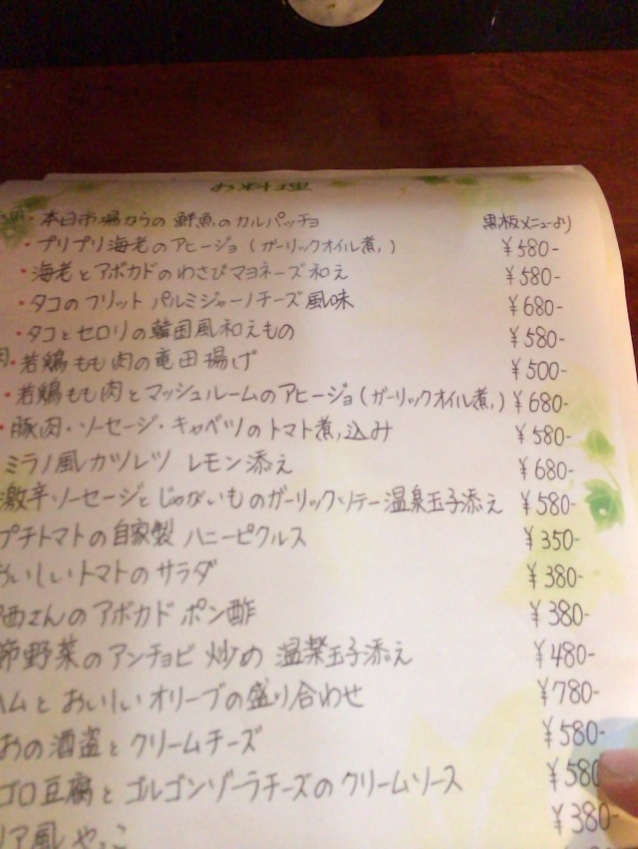 お料理
・本日市場からの 鮮魚のカルパッチョ 黒板メニューより
・プリプリ海老のアヒージョ (ガーリックオイル煮) ¥580-
・海老とアボカドのわさびマヨネーズ和え ¥580-
・タコのフリット パルミジャーノチーズ風味 ¥680-
・タコとセロリの韓国風和えもの ¥580-
・若鶏もも肉の竜田揚げ ¥500-
・若鶏もも肉とマッシュルームのアヒージョ(ガーリックオイル煮) ¥680-
・豚肉・ソーセージ・キャベツのトマト煮込み ¥580-
ミラノ風カツレツ レモン添え ¥680-
激辛ソーセージとじゃがいものガーリックソテー 温泉玉子添え ¥580-
プチトマトの自家製 ハニーピクルス ¥350-
おいしいトマトのサラダ ¥380-
西さんのアボカド ポン酢 ¥380-
節野菜のアンチョビ 炒め 温泉玉子添え ¥480-
ハムと おいしいオリーブの盛り合わせ ¥780-
おの酒盗とクリームチーズ ¥580-
ゴロ豆腐とゴルゴンゾーラチーズのクリームソース ¥580
リア風 やっこ ¥380-